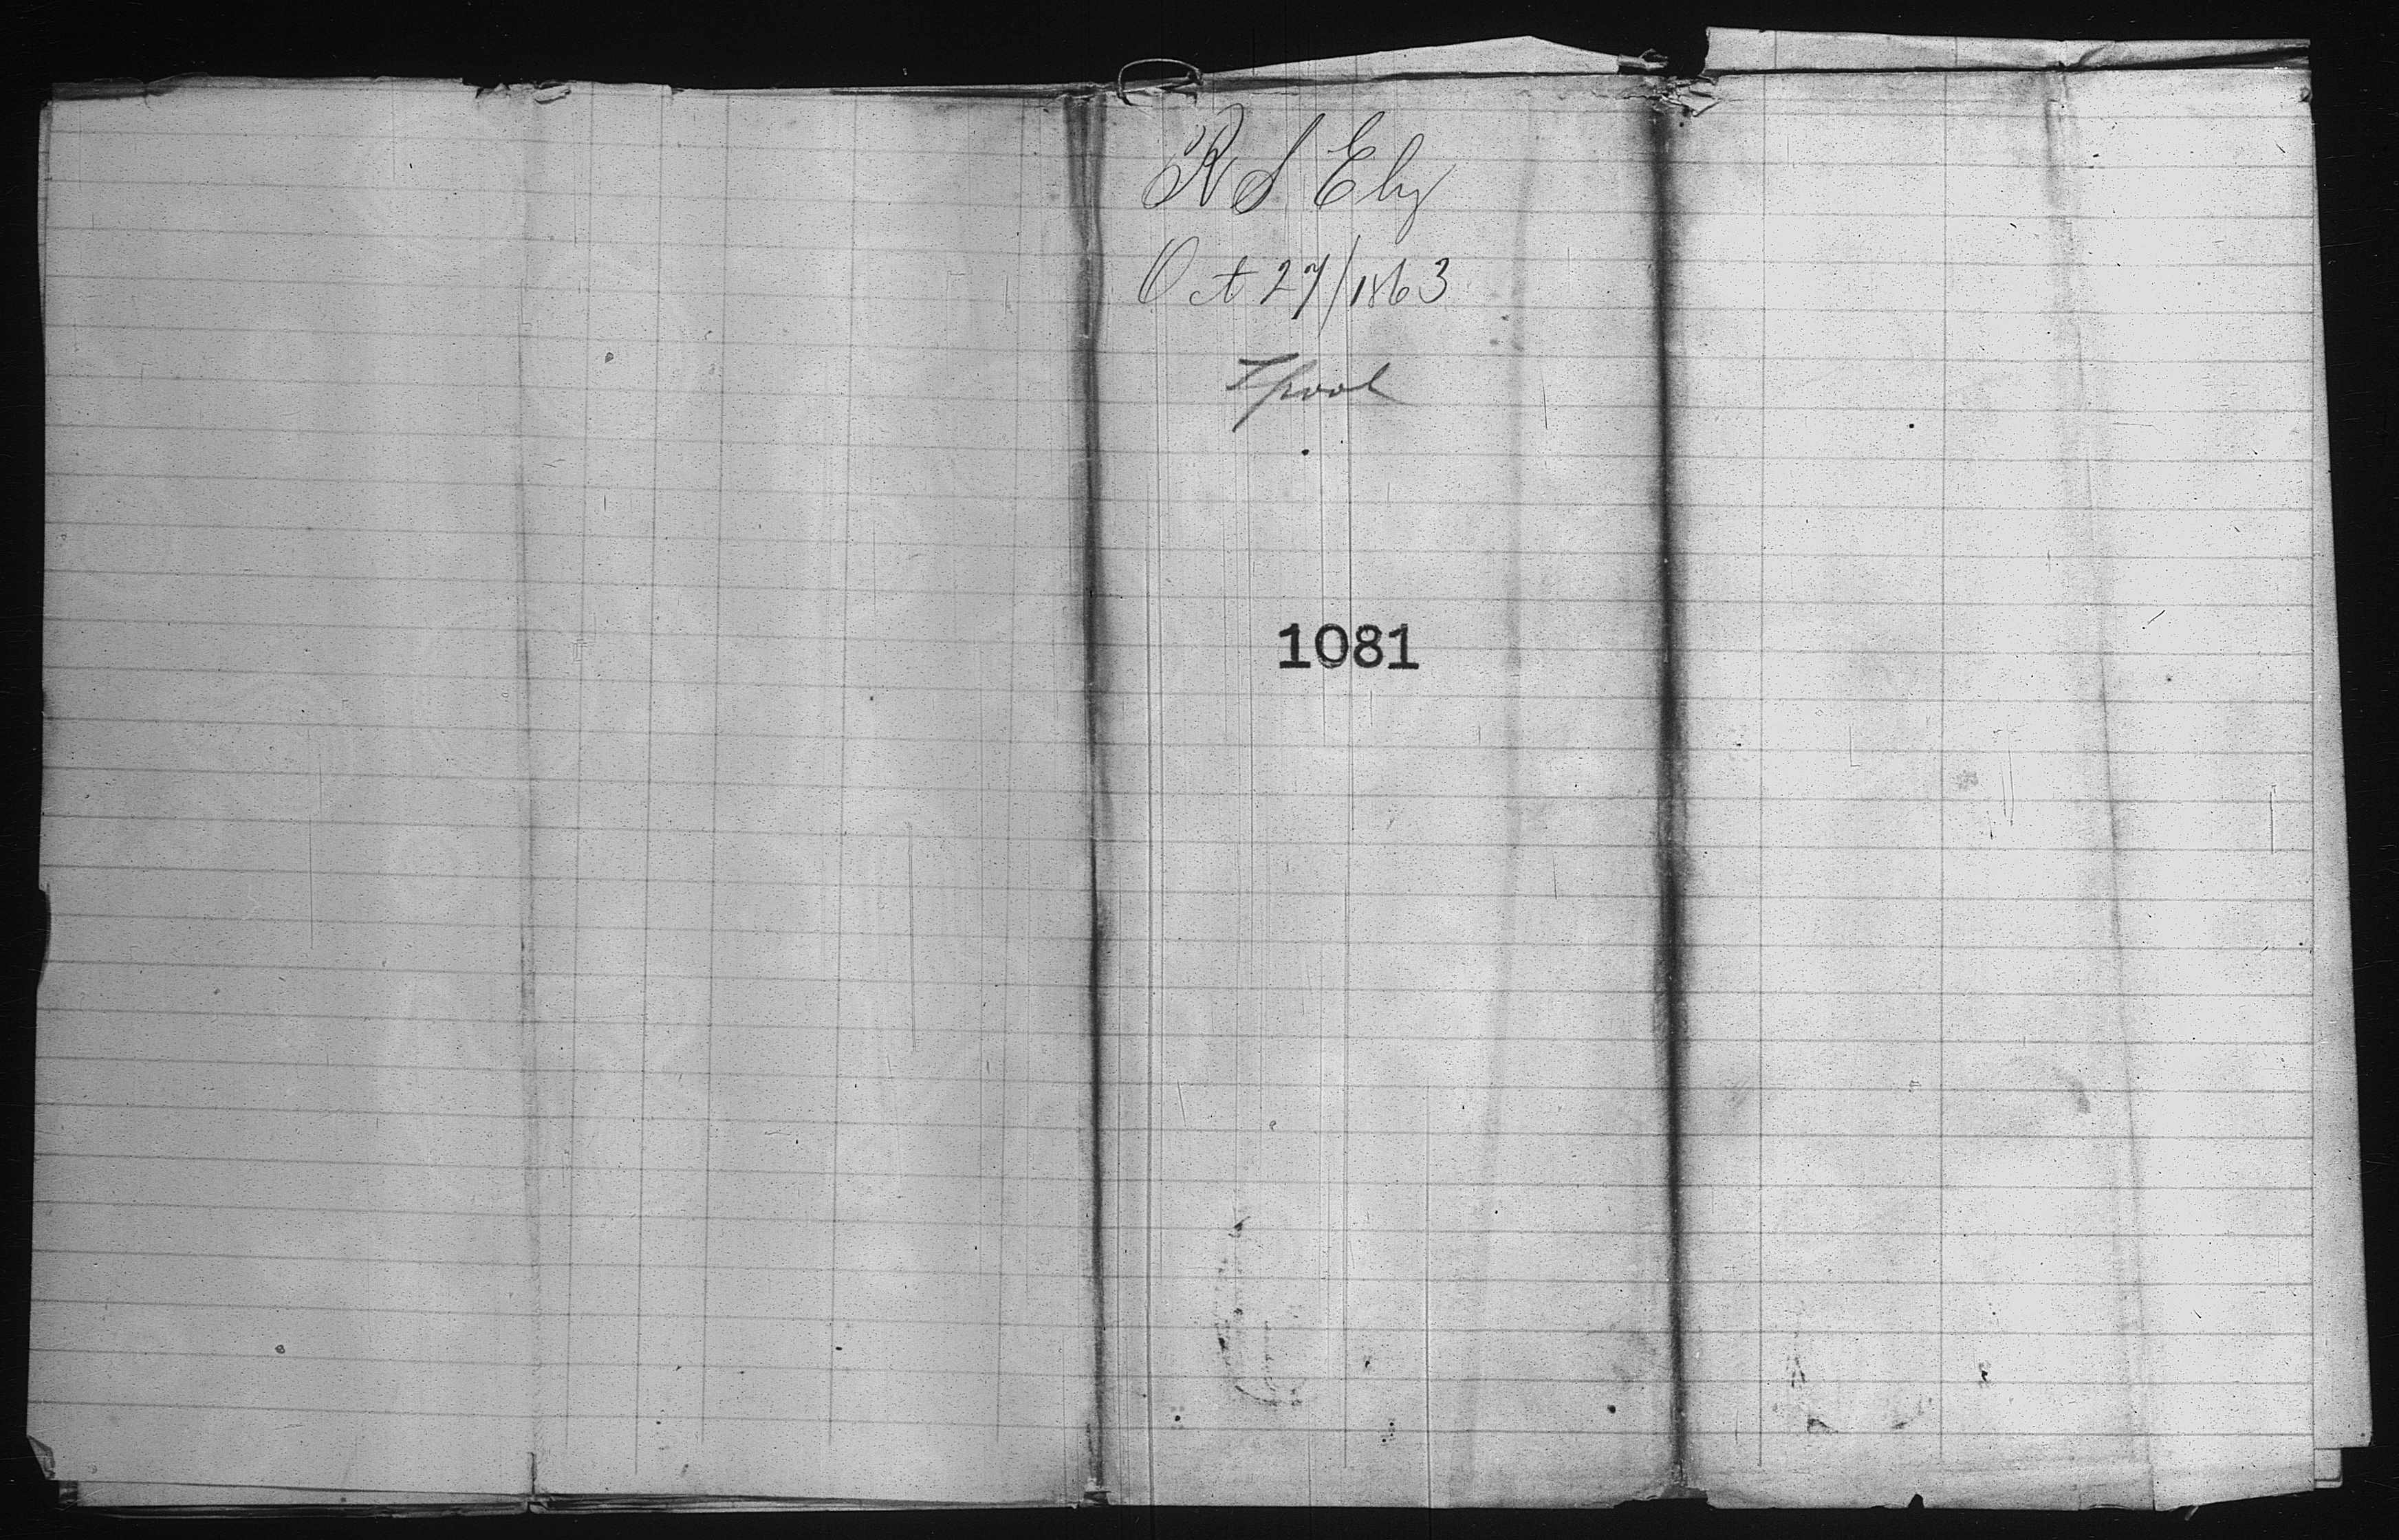 R S Ely
Oct 27/1863
L'pool
1081